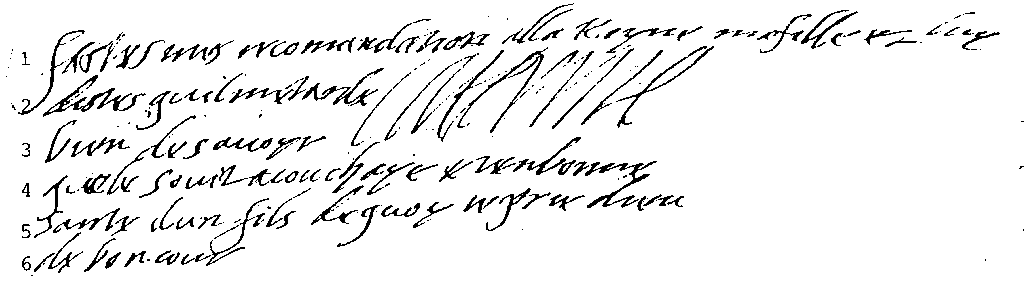 1 Fastes mes recomandation alla Reyne ma fille et luy
2 distes quil me tarde
3 bien de savoyr
4 quele soüit acouchaye et en bonne
5 sante dun fils de quoy je prie dieu
6 de bon ceour